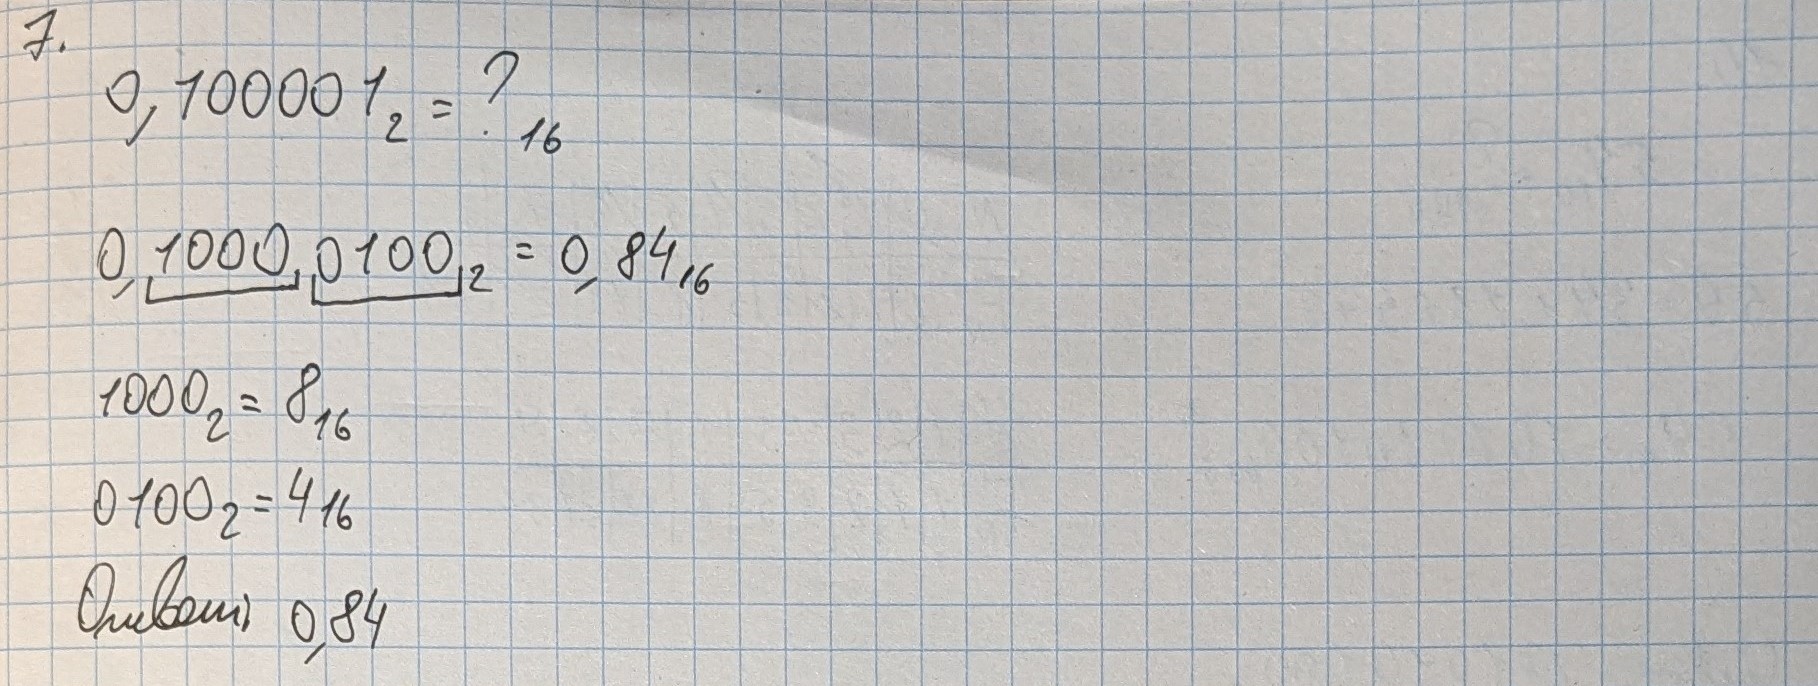 7.
0,100001₂ = ?₁₆
0,1000 0100₂ = 0,84₁₆
1000₂ = 8₁₆
0100₂ = 4₁₆
Ответ: 0,84